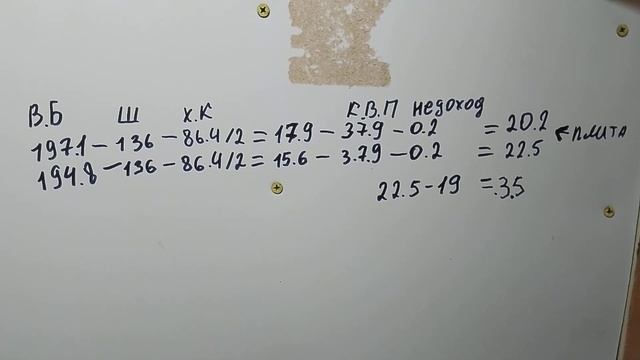 В.Б Ш х.К К.В.П недоход
197.1 – 136 – 86.4/2 = 17.9 – 37.9 – 0.2 = 20.2 ← плита
194.8 – 136 – 86.4/2 = 15.6 – 37.9 – 0.2 = 22.5
22.5 – 19 = 3.5